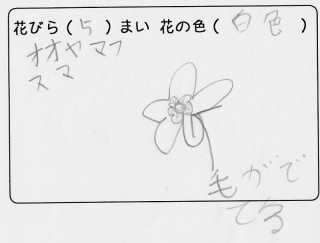 花びら（5）まい 花の色（白色）
オオヤマフ
スマ
毛がで
てる